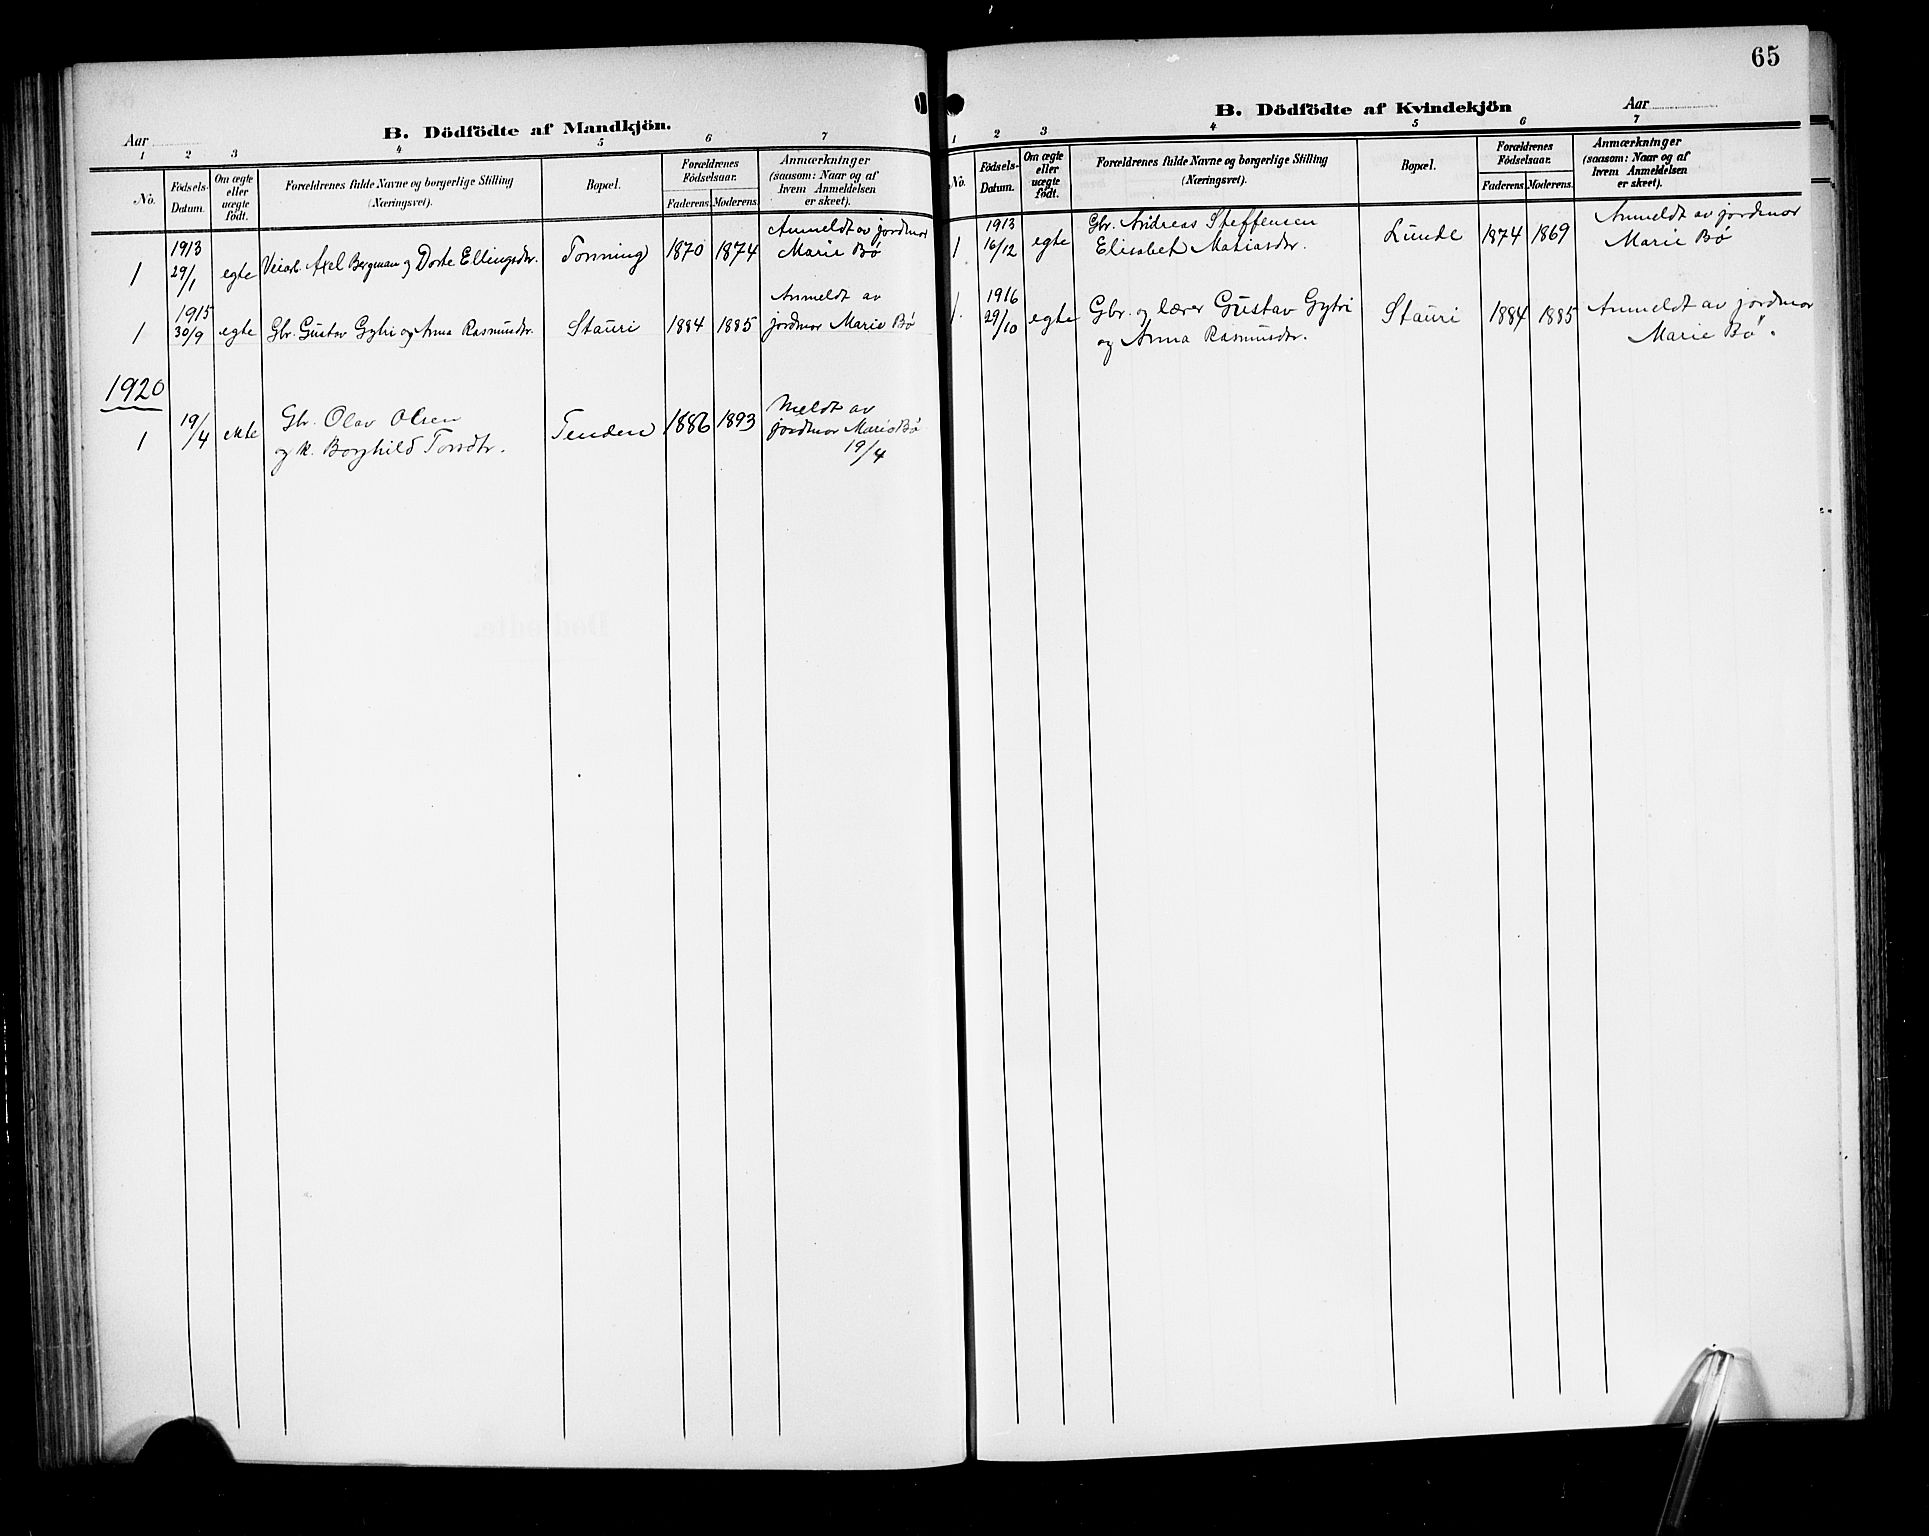 Aar
B. Dödfödte af Mandkjön.
1 2 3 4 5 6 7
No.
Födsels-
Datum.
Om ægte
eller
uægte
födt.
Forældrenes fulde Navne og borgerlige Stilling
(Næringsvei).
Bopæl.
Forældrenes
Födselsaar.
Faderens. Moderens.
Anmærkninger
(saasom: Naar og af
hvem Anmeldelsen
er skeet).
1 1913 29/1 egte Veiarb. Axel Bergman og Dorte Ellingsdtr. Tonning 1870 1874 Anmeldt av jordmor
Marie Bø
1 1915 30/9 egte Gbr. Gustav Gytri og Anna Rasmusdtr. Stauri 1884 1885 Anmeldt av
jordmor Marie Bø
1920
1 19/4 ekte Gbr. Olav Olsen
og k. Borghild Torsdtr. Tenden 1886 1893 Meldt av
jordmor Marie Bø
19/4
65
B. Dödfödte af Kvindekjön
Aar
1 2 3 4 5 6 7
No.
Födsels-
Datum.
Om ægte
eller
uægte
födt.
Forældrenes fulde Navne og borgerlige Stilling
(Næringsvei).
Bopæl.
Forældrenes
Födselsaar.
Faderens. Moderens.
Anmærkninger
(saasom: Naar og af
hvem Anmeldelsen
er skeet).
1 1913 16/12 egte Gbr. Andreas Steffensen
Elisabet Matiasdtr. Lunde 1874 1869 Anmeldt av jordmor
Marie Bø
1. 1916 29/10 egte Gbr. og lærer Gustav Gytri
og Anna Rasmusdtr. Stauri 1884 1885 Anmeldt av jordmor
Marie Bø.